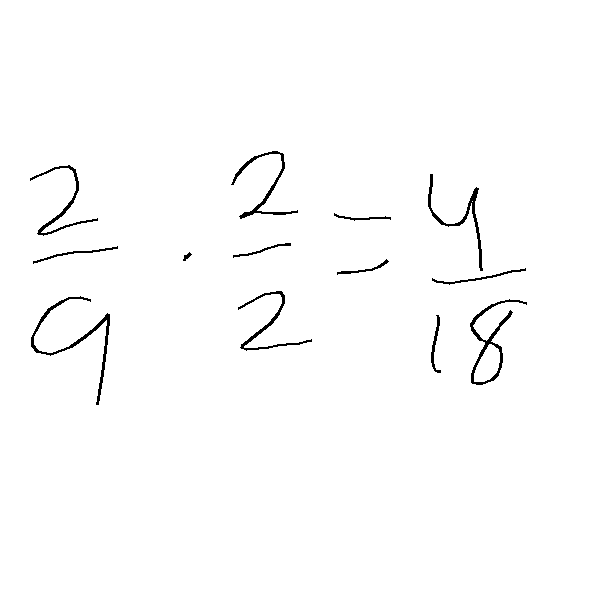 2/9 · 2/2 = 4/18